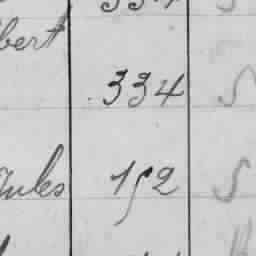 334
bert
334 S
Jules 152 S